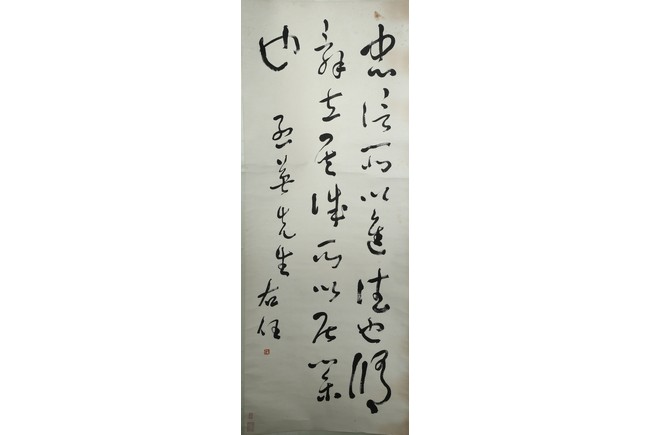 忠信所以進德也脩
辭立其誠所以居業
也
英先生
右任